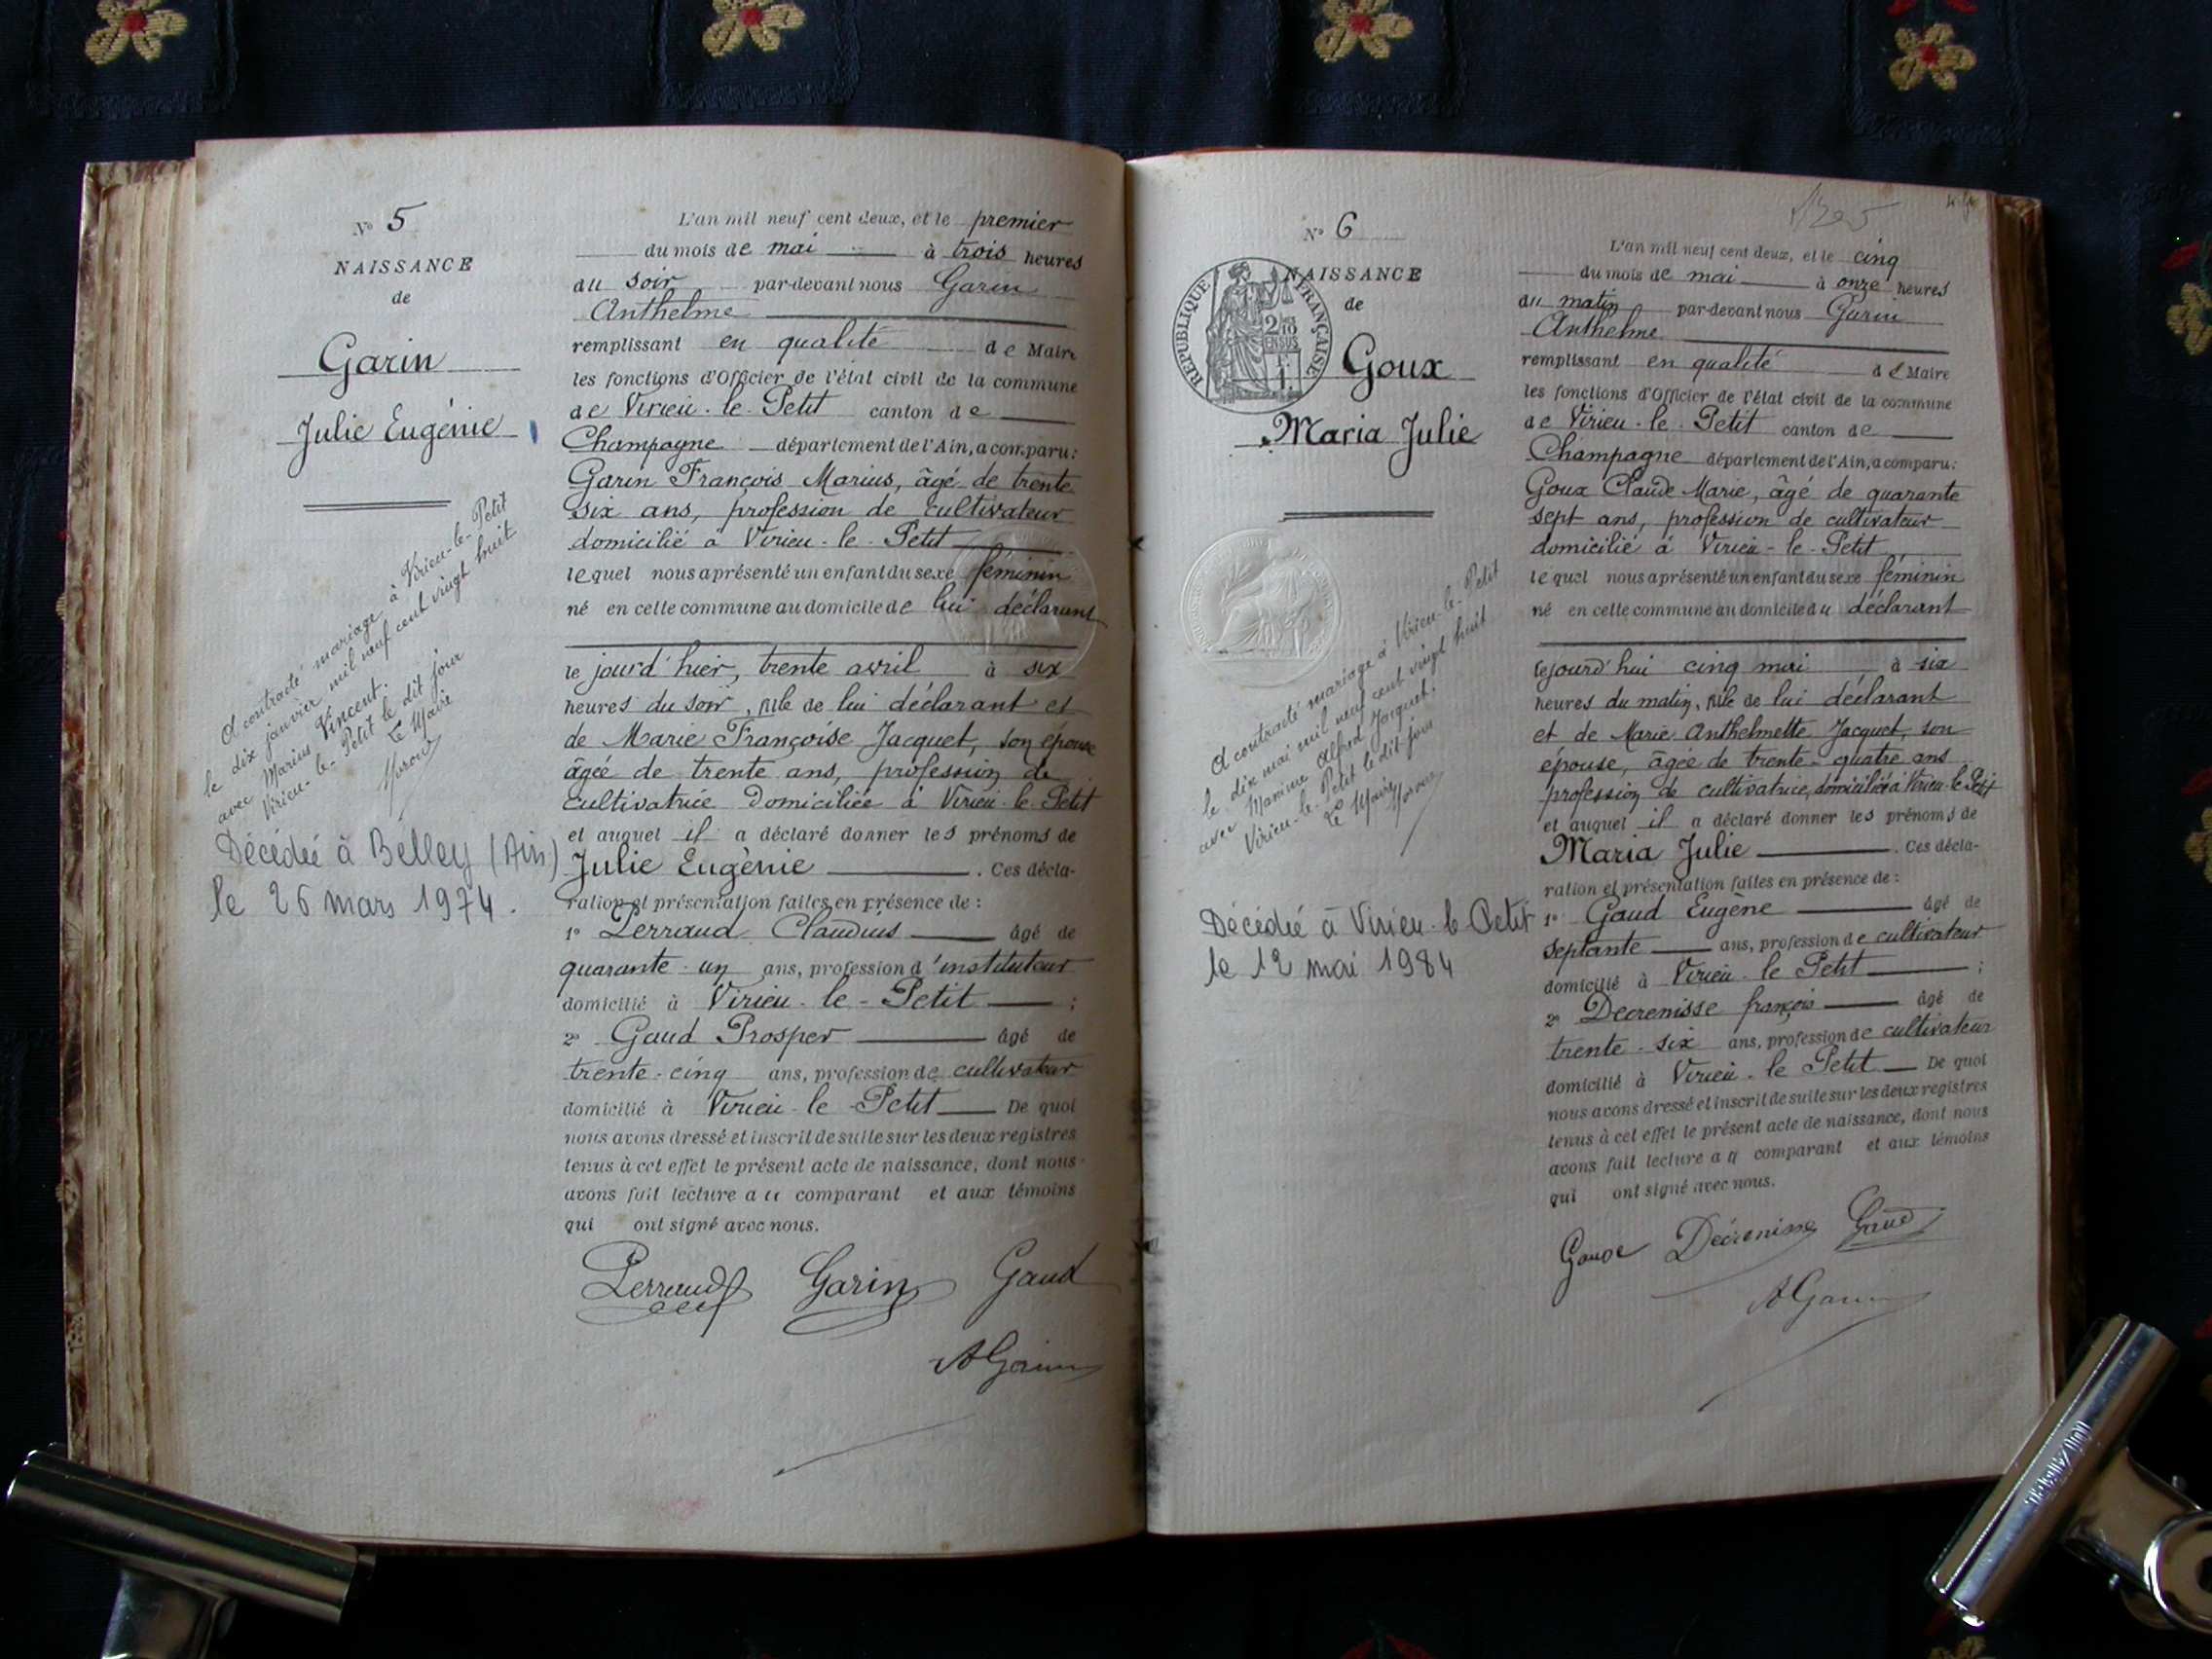 N° 5
NAISSANCE
de
Garin
Julie Eugénie
A contracté mariage à Virieu-le-Petit
le dix janvier mil neuf cent vingt huit
avec Marius Vincent.
Virieu-le-Petit le dit jour
Le Maire
Décédée à Belley (Ain)
le 26 mars 1974.
L'an mil neuf cent deux, et le premier
du mois de mai à trois heures
du soir par-devant nous Garin
Anthelme
remplissant en qualité de Maire
les fonctions d'Officier de l'état civil de la commune
de Virieu-le-Petit canton de
Champagne département de l'Ain, a comparu:
Garin François Marius, âgé de trente
six ans, profession de cultivateur
domicilié à Virieu-le-Petit
lequel nous a présenté un enfant du sexe féminin
né en cette commune au domicile de lui déclarant
le jourd'hier, trente avril à six
heures du soir, née de lui déclarant et
de Marie Françoise Jacquet, son épouse
âgée de trente ans, profession de
cultivatrice domiciliée à Virieu-le-Petit
et auquel il a déclaré donner les prénoms de
Julie Eugènie . Ces décla-
ration et présentation faites en présence de:
1° Perraud Claudius âgé de
quarante-un ans, profession d'instituteur
domicilié à Virieu-le-Petit ;
2° Gaud Prosper âgé de
trente-cinq ans, profession de cultivateur
domicilié à Virieu-le-Petit De quoi
nous avons dressé et inscrit de suite sur les deux registres
tenus à cet effet le présent acte de naissance, dont nous
avons fait lecture au comparant et aux témoins
qui ont signé avec nous.
Perraud Garin Gaud
A Garin
N° 6
NAISSANCE
de
RÉPUBLIQUE FRANÇAISE
2/10
EN SUS
Goux
Maria Julie
A contracté mariage à Virieu-le-Petit
le dix mai mil neuf cent vingt huit
avec Maxime Alfred Jacquet.
Virieu-le-Petit le dit jour
Le Maire
Décédée à Virieu-le-Petit
le 12 mai 1984
L'an mil neuf cent deux, et le cinq
du mois de mai à onze heures
du matin par-devant nous Garin
Anthelme
remplissant en qualité de Maire
les fonctions d'Officier de l'état civil de la commune
de Virieu-le-Petit canton de
Champagne département de l'Ain, a comparu:
Goux Claude Marie, âgé de quarante
sept ans, profession de cultivateur
domicilié à Virieu-le-Petit
lequel nous a présenté un enfant du sexe féminin
né en cette commune au domicile du déclarant
lejourd'hui cinq mai à six
heures du matin, née de lui déclarant
et de Marie Anthelmette Jacquet, son
épouse, âgée de trente-quatre ans
profession de cultivatrice, domiciliée à Virieu-le-Petit
et auquel il a déclaré donner les prénoms de
Maria Julie . Ces décla-
ration et présentation faites en présence de:
1° Gaud Eugène âgé de
septante ans, profession de cultivateur
domicilié à Virieu-le-Petit ;
2° Decrenisse françois âgé de
trente-six ans, profession de cultivateur
domicilié à Virieu-le-Petit De quoi
nous avons dressé et inscrit de suite sur les deux registres
tenus à cet effet le présent acte de naissance, dont nous
avons fait lecture au comparant et aux témoins
qui ont signé avec nous.
Goux Décrenisse Gaud
A Garin